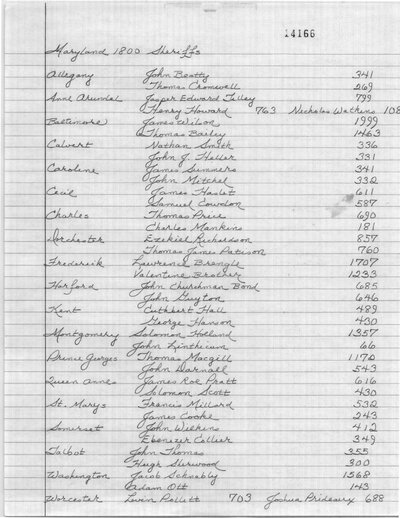 14166
Maryland 1800 Sheriffs
Allegany John Beatty 341
Thomas Cromwell 269
Anne Arundel Jasper Edward Tilley 799
Henry Howard 763 Nicholas Watkins 108
Baltimore James Wilson 1999
Thomas Bailey 1463
Calvert Nathan Smith 336
John J. Heller 331
Caroline James Summers 341
John Mitchel 332
Cecil James Haslet 611
Samuel Cowdon 587
Charles Thomas Price 690
Charles Mankins 181
Dorchester Ezekiel Richardson 857
Thomas James Patison 760
Frederick Lawrence Brengle 1707
Valentine Brother 1233
Harford John Churchman Bond 685
John Guyton 646
Kent Cuthbert Hall 489
George Hanson 430
Montgomery Solomon Holland 1357
John Linthicum 66
Prince Georges Thomas Macgill 1170
John Darnall 543
Queen Annes James Roe Pratt 616
Solomon Scott 430
St. Marys Francis Millard 532
James Cooke 243
Somerset John Wilkins 412
Ebenezer Collier 349
Talbot John Thomas 355
Hugh Sherwood 300
Washington Jacob Schnebly 1568
Adam Ott 143
Worcester Leven Pollett 703 Joshua Prideaux 688